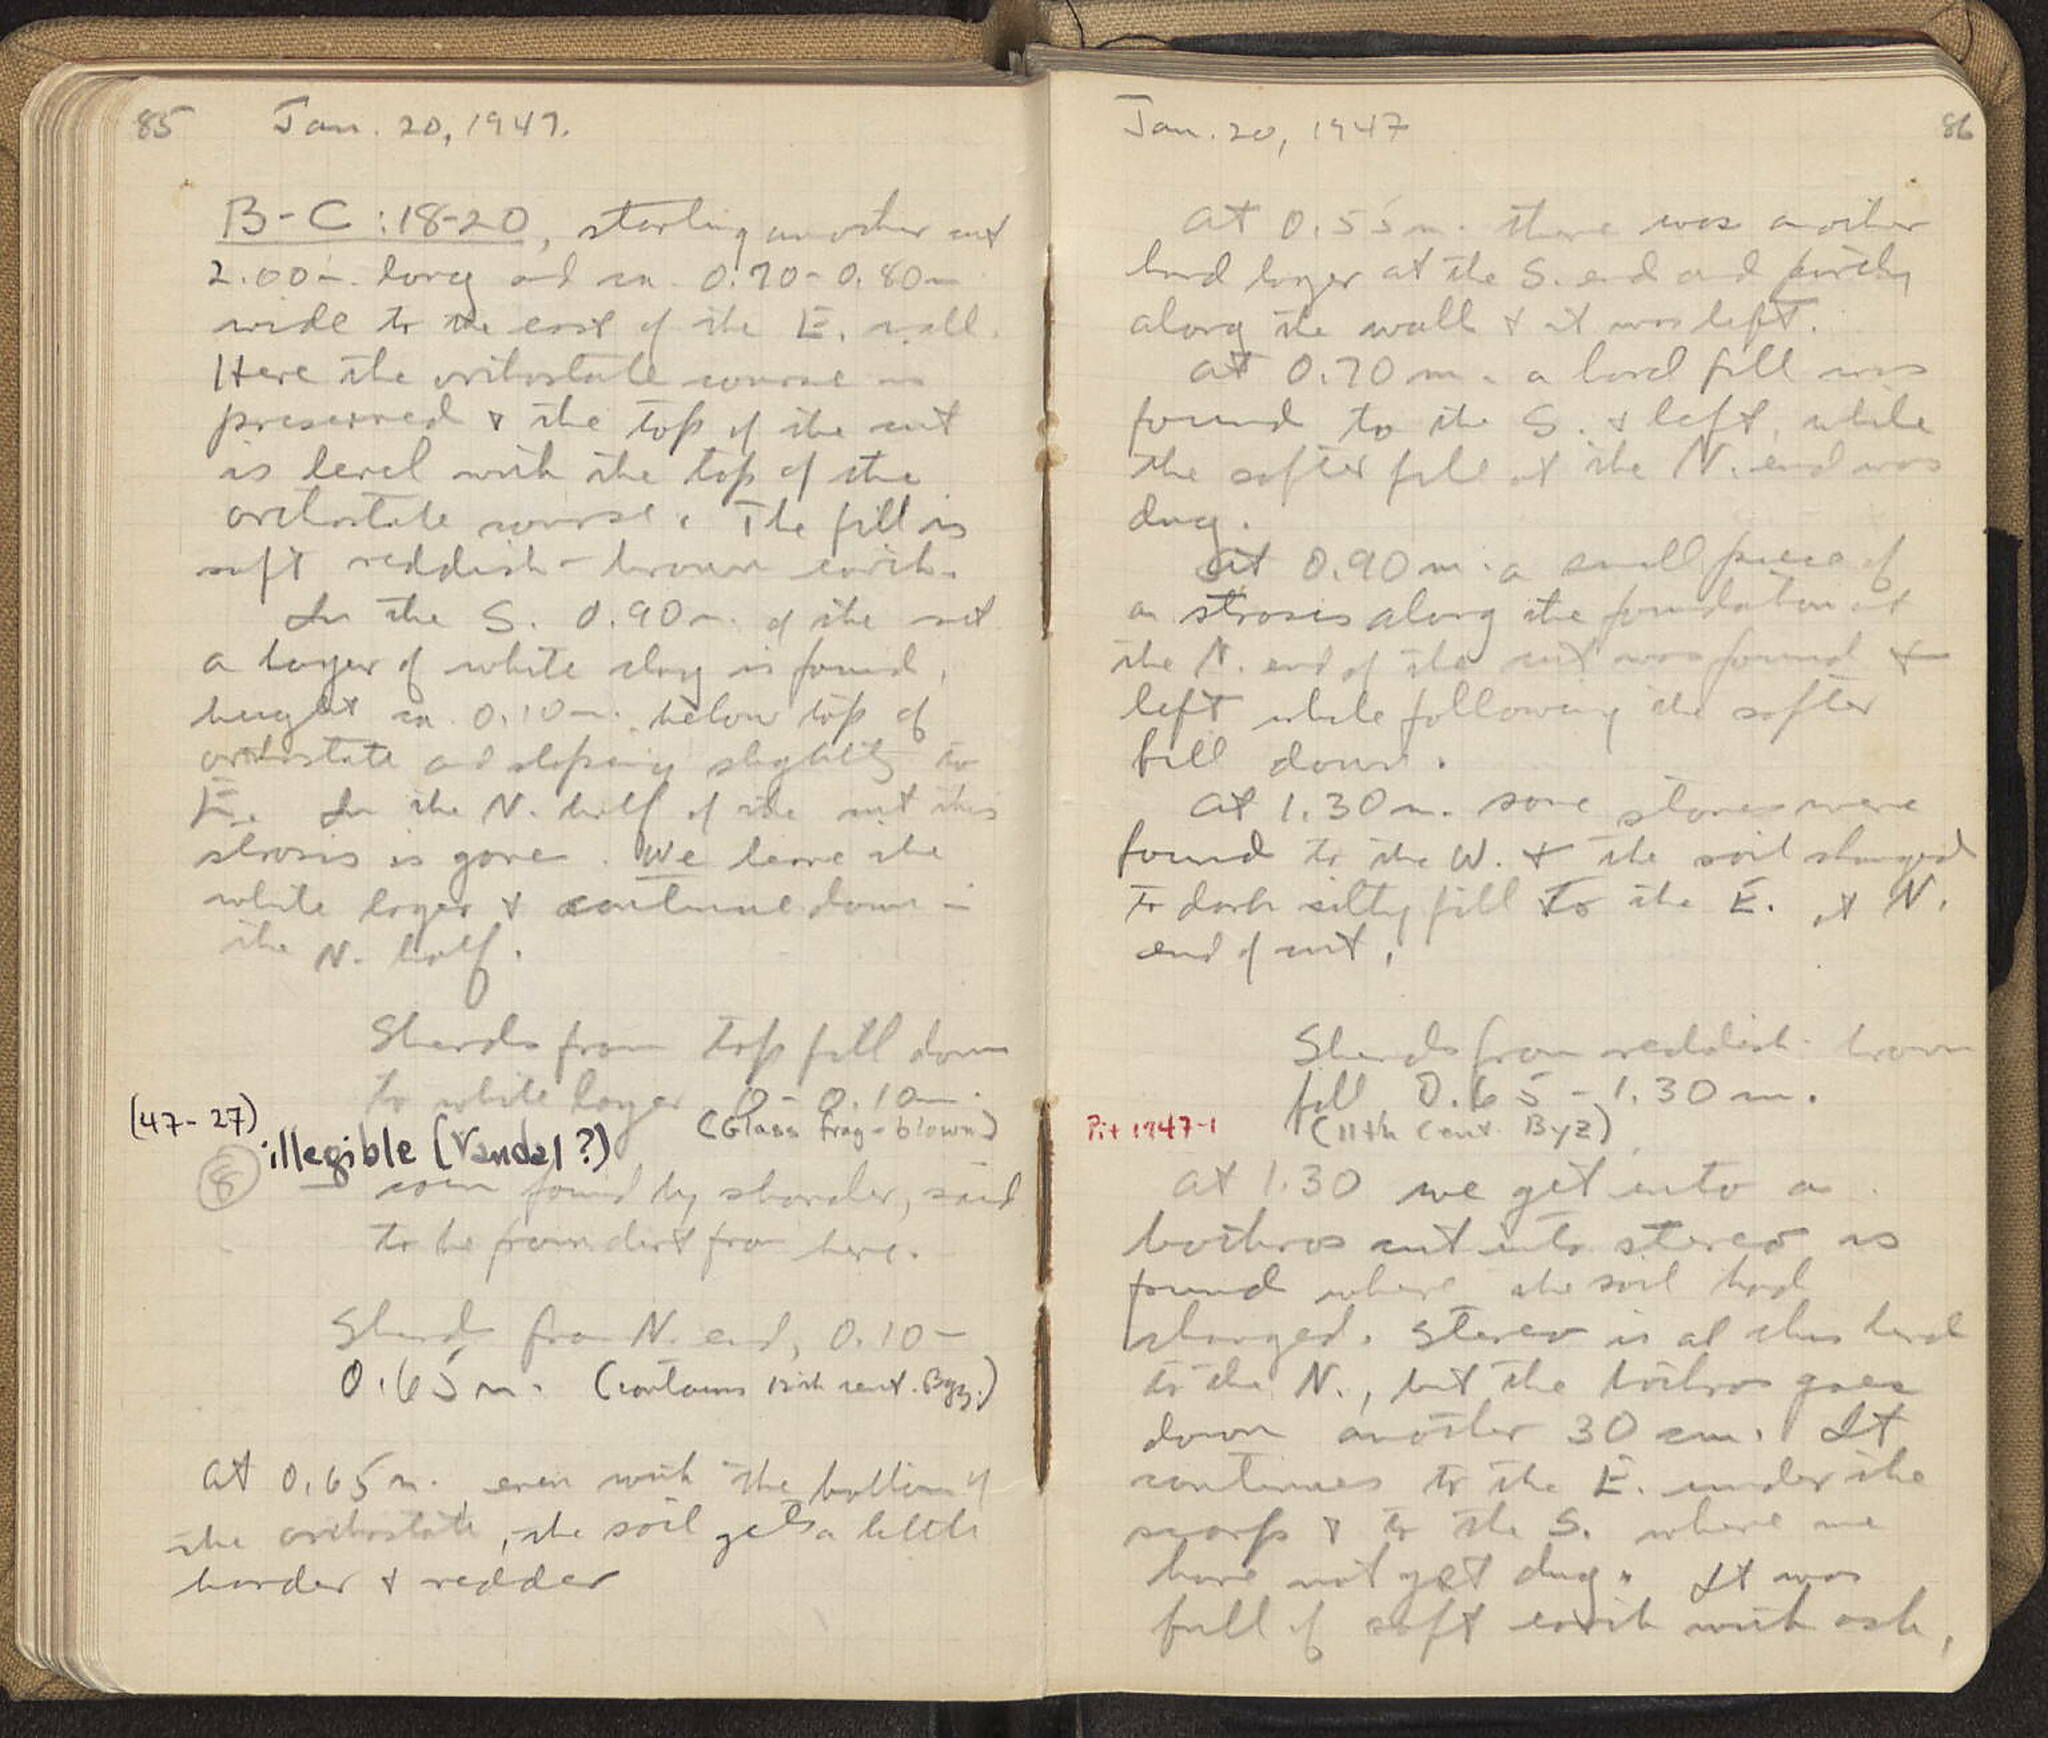 85 Jan. 20, 1947.
B-C:18-20, starting another cut
2.00m. long and ca. 0.70-0.80m
wide to the east of the E. wall.
Here the orthostate course is
preserved & the top of the cut
is level with the top of the
orthostate course. The fill is
soft reddish-brown earth.
In the S. 0.90m. of the cut
a layer of white clay is found,
height ca. 0.10m. below top of
orthostate and sloping slightly to
E. In the N. half of the cut this
strosis is gone. We leave the
white layer & continue down in
the N. half.
Sherds from top fill down
to white layer 0-0.10m.
(47-27) (Glass frag-blown)
8 illegible (Vandal?)
coin found by sharder, said
to be from dirt from here.
Sherds from N. end, 0.10-
0.65m. (contains 12th cent. Byz.)
At 0.65m. even with the bottom of
the orthostate, the soil gets a little
harder & redder
Jan. 20, 1947 86
At 0.55m. there was another
hard layer at the S. end and partly
along the wall & it was left.
At 0.70m. a hard fill was
found to the S. & left, while
the softer fill at the N. end was
dug.
At 0.90m. a small piece of
a strosis along the foundation at
the N. end of the cut was found &
left while following the softer
fill down.
At 1.30m. some stones were
found to the W. & the soil changed
to dark silty fill to the E. at N.
end of cut.
Sherds from reddish-brown
fill 0.65-1.30m.
Pit 1947-1 (11th Cent. Byz)
At 1.30 we get into a
bothros cut into stereo as
found where the soil had
changed. Stereo is at this level
to the N., but the bothros goes
down another 30 cm. It
continues to the E. under the
scarp & to the S. where we
have not yet dug. It was
full of soft earth with ash,